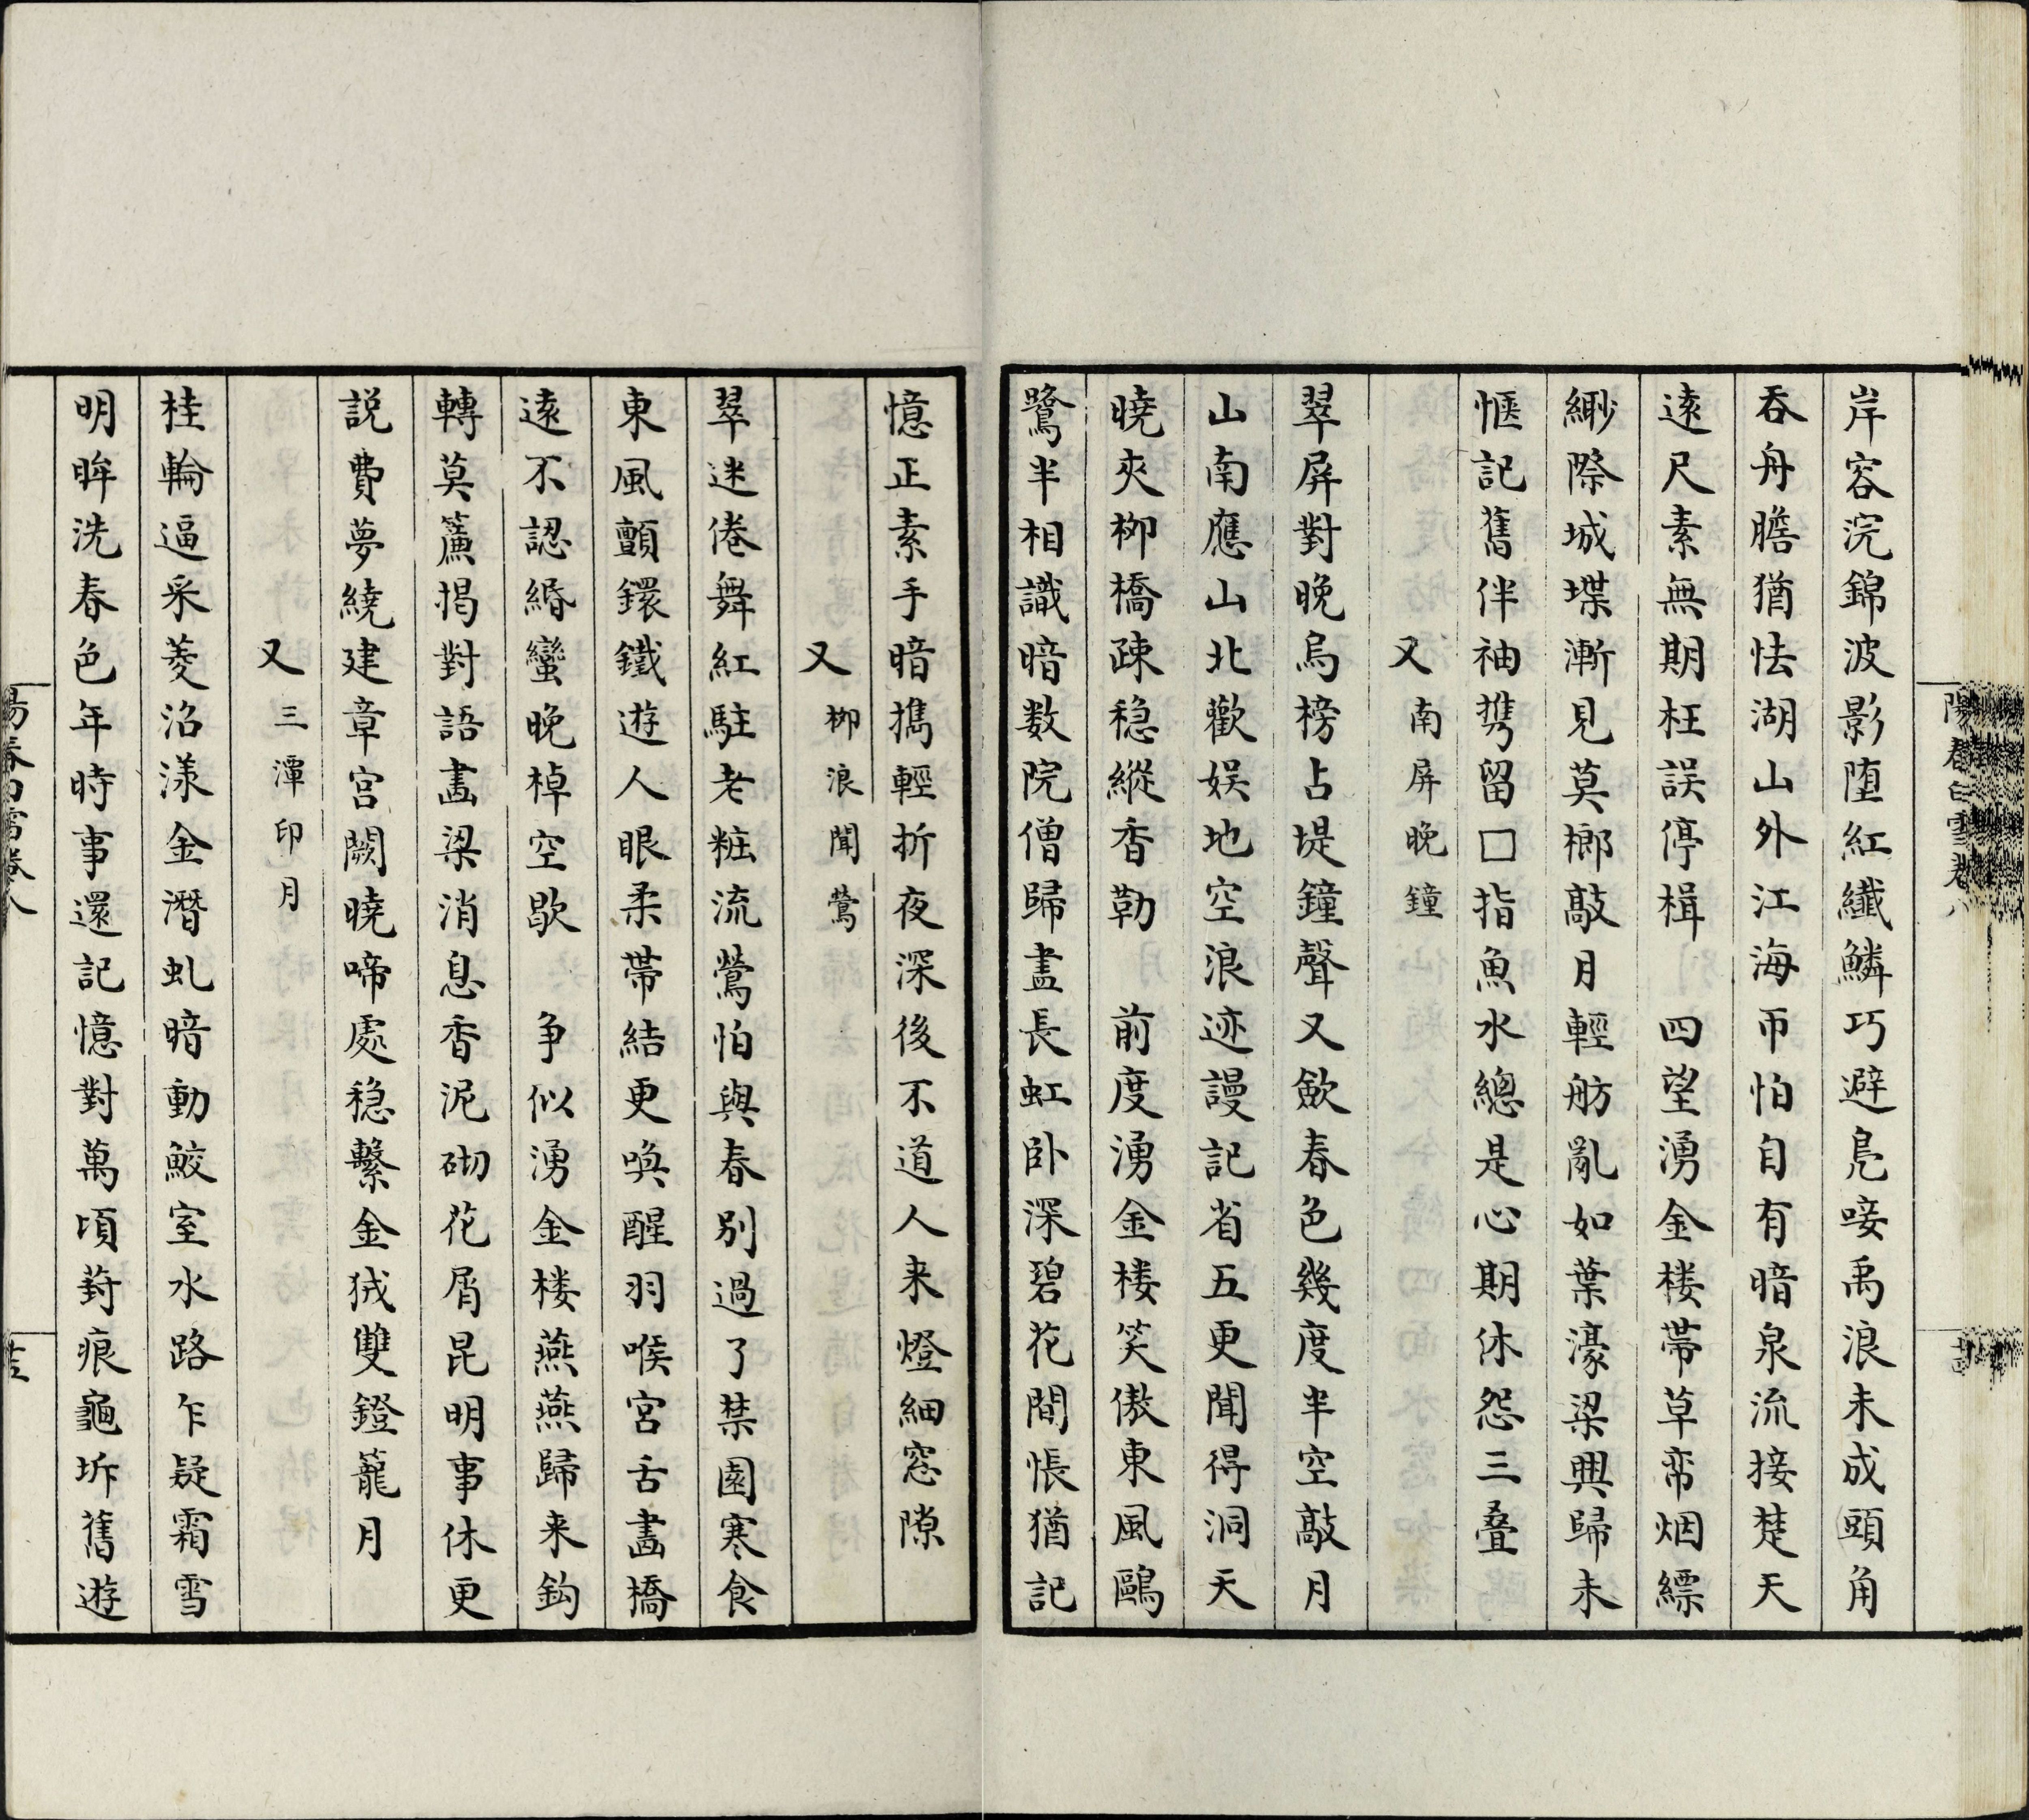 岸容浣錦波影堕紅纖鱗巧避鳧唼禹浪未成頭角
吞舟膽猶怯湖山外江海帀怕自有暗泉流接楚天
遠尺素無期枉誤停楫　四望湧金楼帶草帟烟縹
緲際城堞漸見莫榔敲月輕舫亂如葉濠梁興歸未
愜記舊伴袖携留□指魚水總是心期休怨三疊
又南屏晚鐘
翠屏對晚烏榜占堤鐘聲又歛春色幾度半空敲月
山南應山北歡娱地空浪迹謾記省五更聞得洞天
曉夾柳橋疎稳縱香勒　前度湧金楼笑傲東風鷗
鷺半相識暗数院僧歸盡長虹卧深碧花間悵猶記
憶正素手暗擕輕折夜深後不道人来燈細窓隙
又柳浪聞鶯
翠迷倦舞紅駐老粧流鶯怕與春别過了禁園寒食
東風顫鐶鐵遊人眼柔帶結更喚醒羽喉宮舌畵橋
遠不認緡蠻晚棹空歇　争似湧金楼燕燕歸来鈎
轉莫簾揭對語畵梁消息香泥砌花屑昆明事休更
説費夢繞建章宮闕曉啼處稳繫金狨雙鐙籠月
又三潭印月
桂輪逼采菱沿漾金潛虬暗動鮫室水路乍疑霜雪
明眸洗春色年時事還記憶對萬頃葑痕龜坼舊遊
陽春白雪卷八